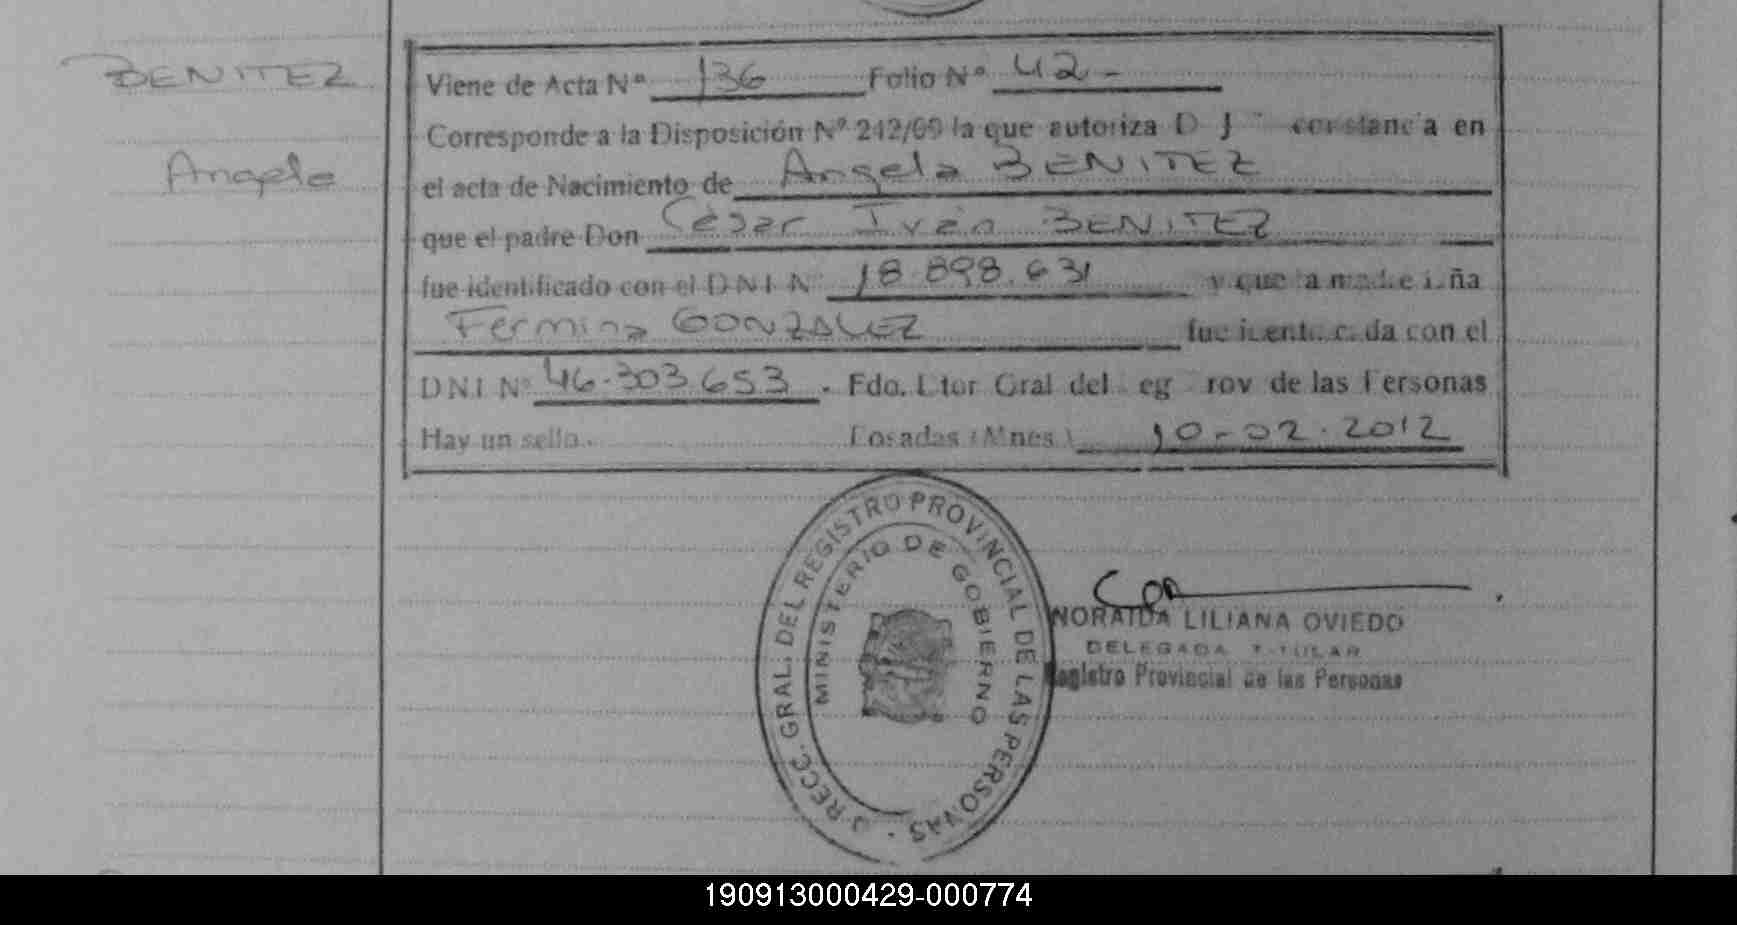 BENITEZ
Angela
Viene de Acta Nº 136 Folio Nº 42-
Corresponde a la Disposición Nº 212/09 la que autoriza D J constancia en
el acta de Nacimiento de Angela BENITEZ
que el padre Don César Iván BENITEZ
fue identificado con el D N I Nº 18.898.631 y que la madre
Fermina GONZALEZ fue con el
D N I Nº 46.303.653. Fdo. Dtor Gral del eg rov de las Personas
Hay un sello. Posadas (Mnes) 10-02-2012
RECC. GRAL. DEL REGISTRO PROVINCIAL DE LAS PERSONAS
MINISTERIO DE GOBIERNO
NORAIDA LILIANA OVIEDO
DELEGADA TITULAR
Registro Provincial de las Personas
190913000429-000774